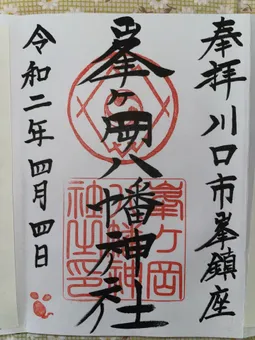 奉拝川口市峯鎮座
峯ヶ岡八幡神社
令和二年四月四日
峯ヶ岡
八幡神
社之印